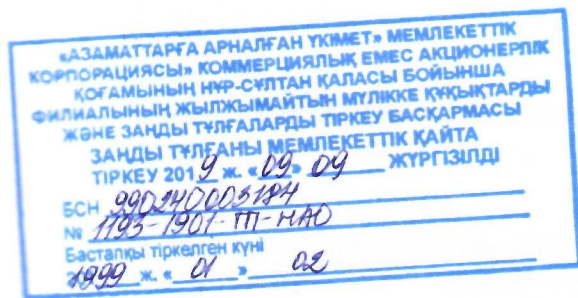 «АЗАМАТТАРҒА АРНАЛҒАН ҮКІМЕТ» МЕМЛЕКЕТТІК
КОРПОРАЦИЯСЫ» КОММЕРЦИЯЛЫҚ ЕМЕС АКЦИОНЕРЛІК
ҚОҒАМЫНЫҢ НҰР-СҰЛТАН ҚАЛАСЫ БОЙЫНША
ФИЛИАЛЫНЫҢ ЖЫЛЖЫМАЙТЫН МҮЛІККЕ ҚҰҚЫҚТАРДЫ
ЖӘНЕ ЗАҢДЫ ТҰЛҒАЛАРДЫ ТІРКЕУ БАСҚАРМАСЫ
ЗАҢДЫ ТҰЛҒАНЫ МЕМЛЕКЕТТІК ҚАЙТА
ТІРКЕУ 2019 ж. «09» 09 ЖҮРГІЗІЛДІ
БСН 990240003184
№ 1193-1901-ТП-НАО
Бастапқы тіркелген күні
1999 ж. « 01 » 02